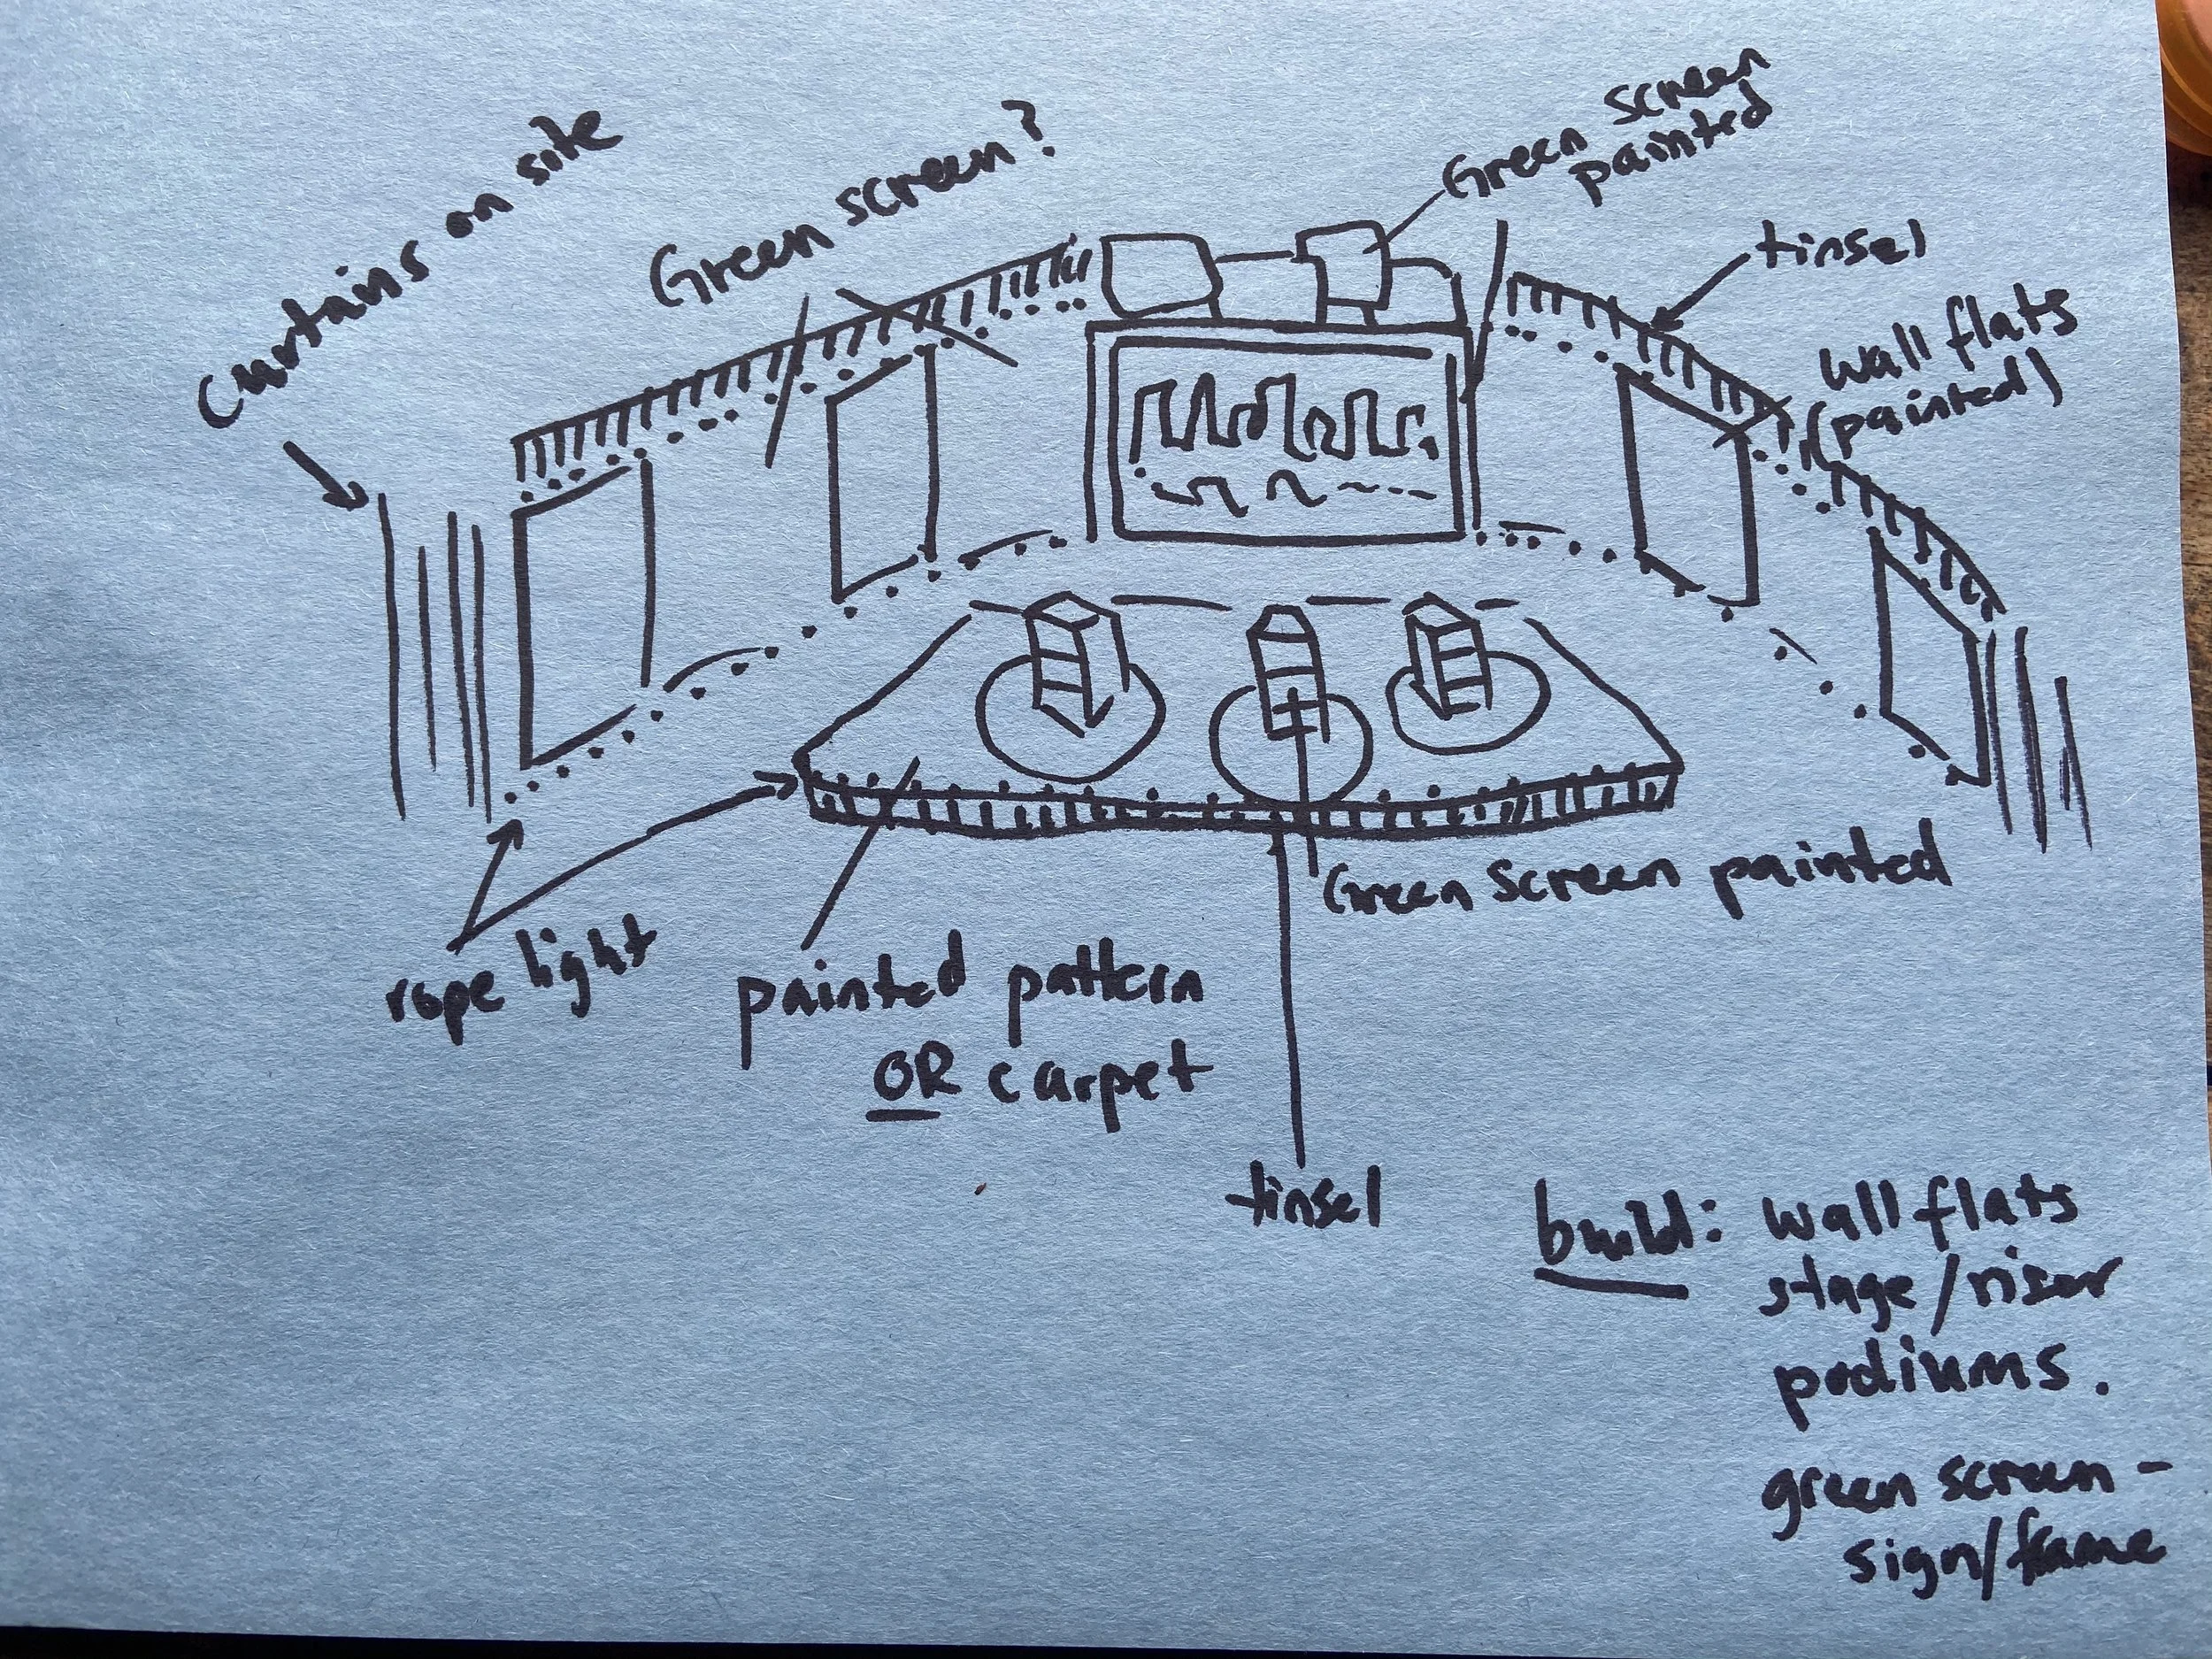 curtains on site
Green screen?
Green screen
painted
tinsel
wall flats
(painted)
Green screen painted
rope light
painted pattern
OR carpet
tinsel
build: wall flats
stage/riser
podiums.
green screen -
sign/frame